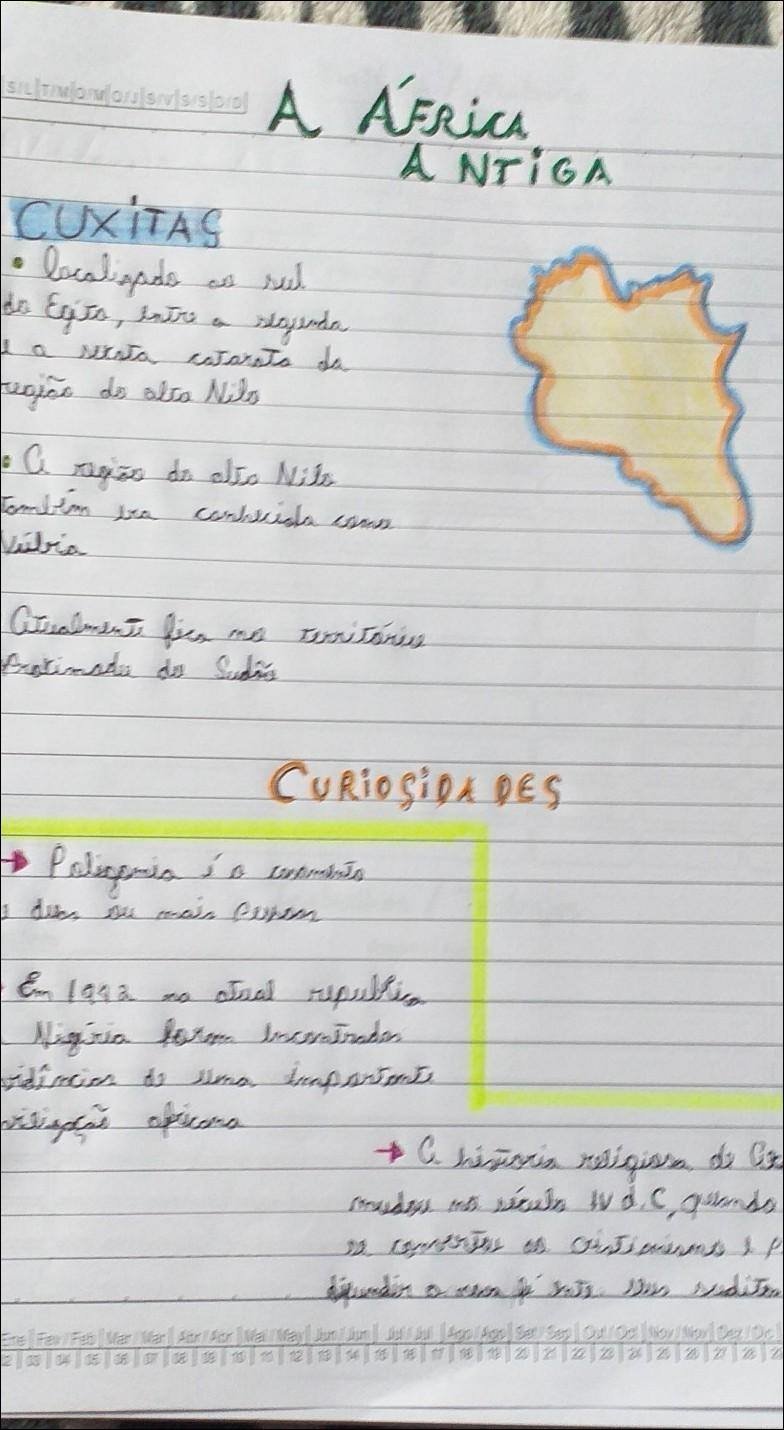 S/L|T/M|Q/M|Q/J|S/V|S/S|D/D
A ÁFRICA
ANTIGA
CUXITAS
• localizado ao sul
do Egito, entre a segunda
e a sexta catarata da
região do alto Nilo
• A região do alto Nilo
também era conhecida como
Núbia
Atualmente fica no território
do Sudão
CURIOSIDADES
→ Poligamia é o
duas ou mais
Em 1992 na atual republica
Nigéria foram encontradas
de uma importante
africana
→ A história religiosa de
mudou no século IV d.C, quando
se converteu ao
a seus suditos
Ene | Fev/Feb | Mar/Mar | Abr/Abr | Mai/May | Jun/Jun | Jul/Jul | Ago/Ago | Set/Sep | Out/Oct | Nov/Nov | Dez/Dic
02 | 03 | 04 | 05 | 06 | 07 | 08 | 09 | 10 | 11 | 12 | 13 | 14 | 15 | 16 | 17 | 18 | 19 | 20 | 21 | 22 | 23 | 24 | 25 | 26 | 27 | 28